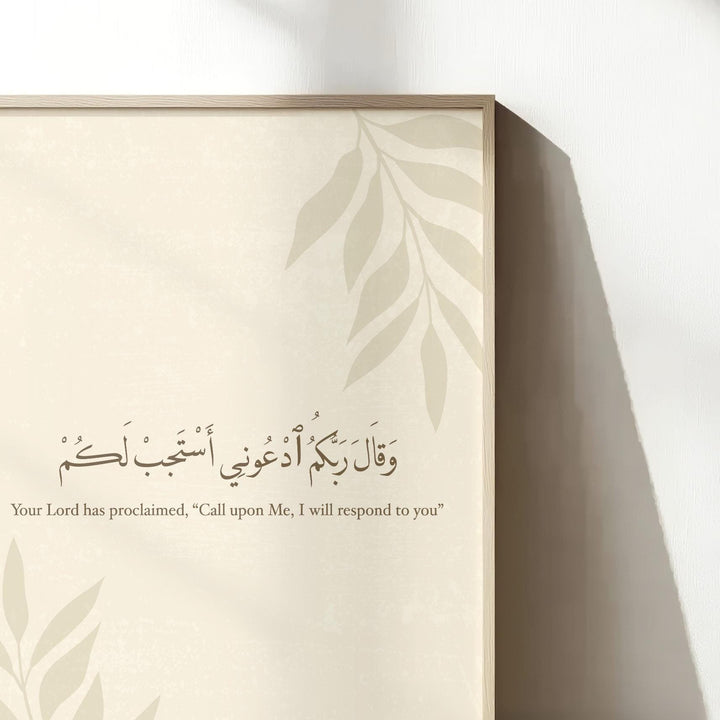 وَقَالَ رَبُّكُمُ ٱدْعُونِي أَسْتَجِبْ لَكُمْ
Your Lord has proclaimed, “Call upon Me, I will respond to you”